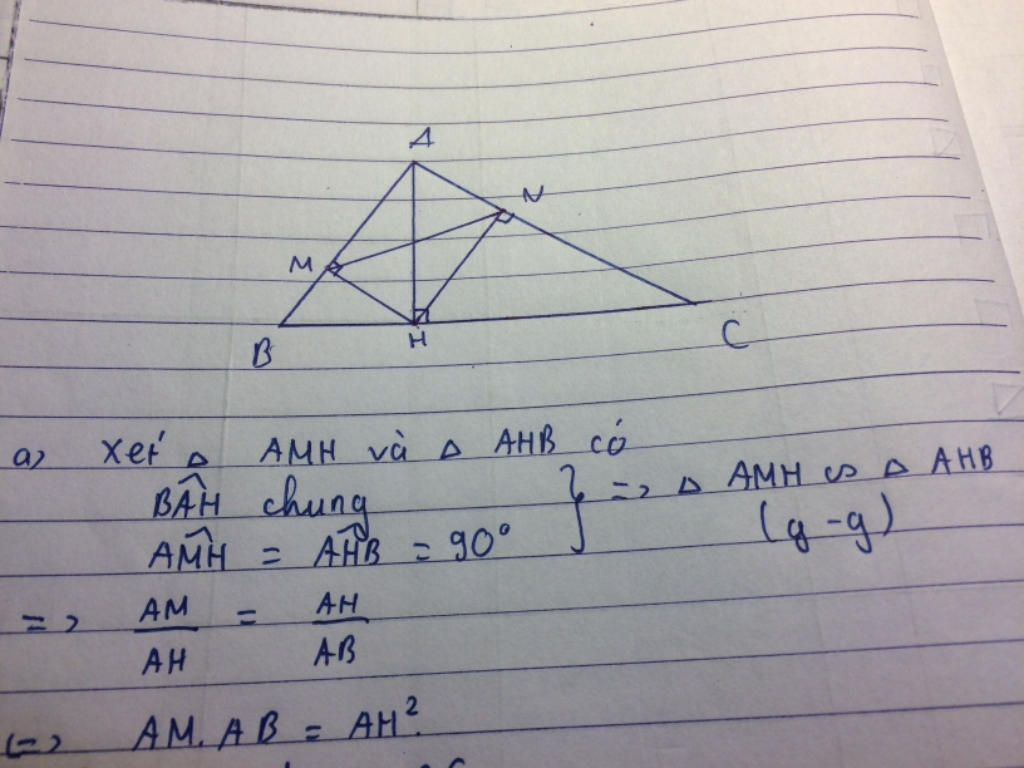 A
N
M
B
H
C
a) Xét △ AMH và △ AHB có
BAH chung
AMH = AHB = 90° } => △ AMH ∽ △ AHB
(g-g)
=> AM/AH = AH/AB
(=> AM. AB = AH².